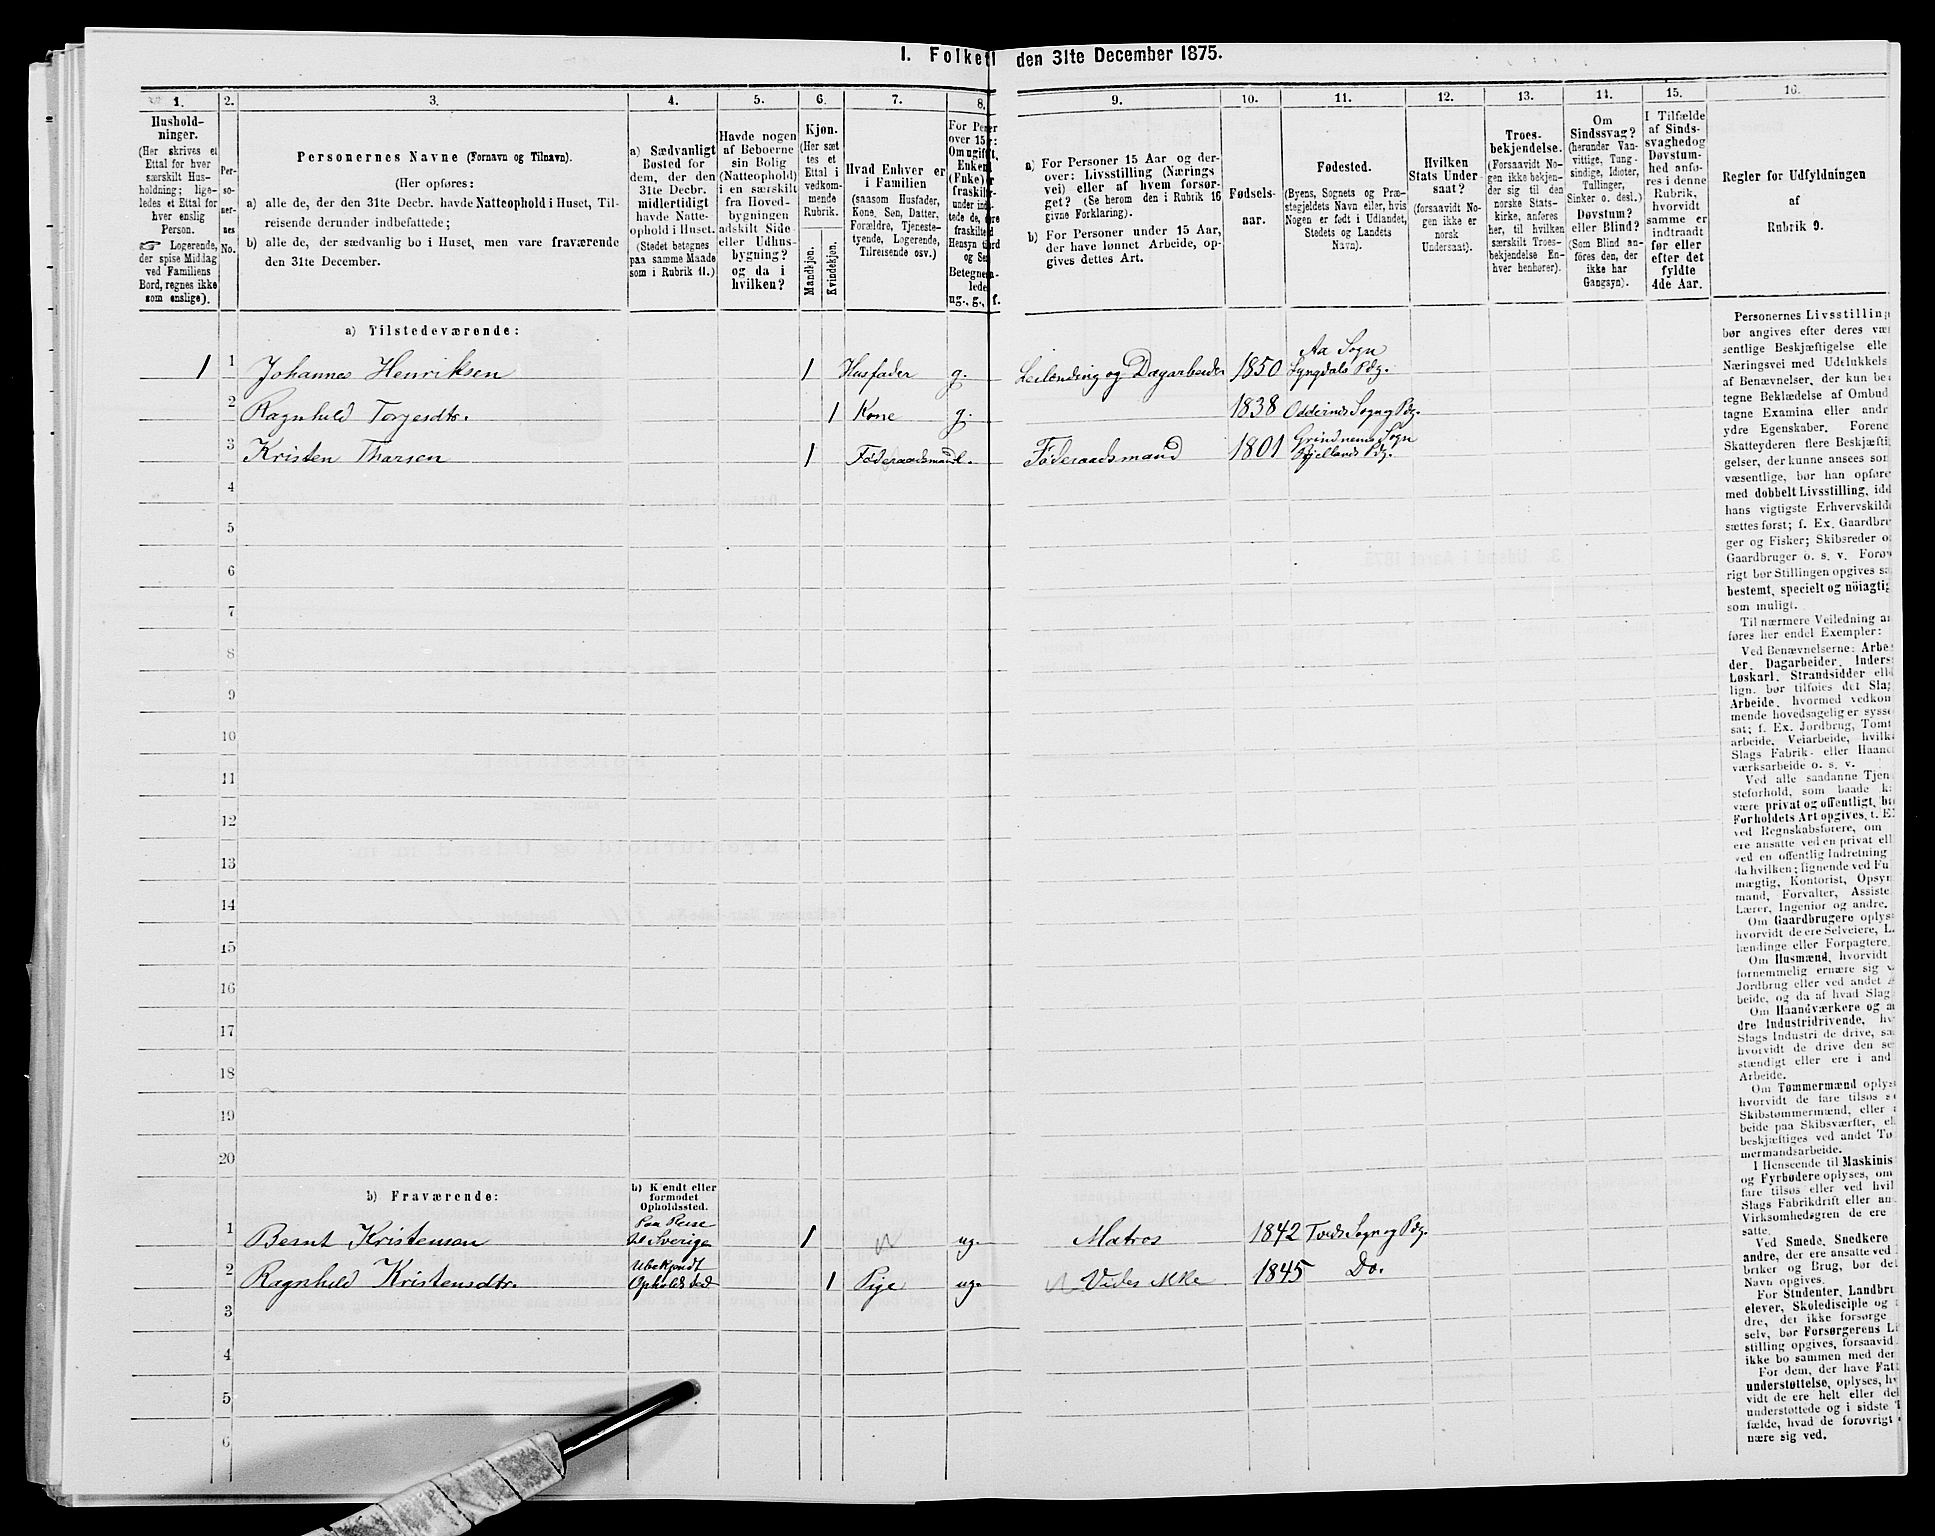 1. Folket
den 31te December 1875.
1. 2. 3. 4. 5. 6. 7. 8. 9. 10. 11. 12. 13. 14. 15. 16.
Hushold-
ninger.
(Her skrives et
Ettal for hver
særskilt Hus-
holdning; lige-
ledes et Ettal for
hver enslig
Person.
☞ Logerende,
der spise Middag
ved Familiens
Bord, regnes ikke
som enslige).
Per-
so-
ner-
nes
No.
Personernes Navne (Fornavn og Tilnavn).
(Her opføres:
a) alle de, der den 31te Decbr. havde Natteophold i Huset, Til-
reisende derunder indbefattede;
b) alle de, der sædvanlig bo i Huset, men vare fraværende
den 31te December.
a) Sædvanligt
Bosted for
dem, der den
31te Decbr.
midlertidigt
havde Natte-
ophold i Huset.
(Stedet betegnes
paa samme Maade
som i Rubrik 11.)
Havde nogen
af Beboerne
sin Bolig
(Natteophold)
i en særskilt
fra Hoved-
bygningen
adskilt Side-
eller Udhus-
bygning?
og da i
hvilken?
Kjøn.
(Her sæt
tes et
Ettal i
vedkom-
mende
Rubrik.
Mandkjøn.
Kvindekjøn.
Hvad Enhver er
i Familien
(saasom Husfader,
Kone, Søn, Datter,
Forældre, Tjeneste-
tyende, Logerende,
Tilreisende osv.)
For Per
over 15
Om ugift,
Enkem
(Enke)
fraskilt
Hensyn
og Se
Betegne
lede
ug., g., f.
a) For Personer 15 Aar og der-
over: Livsstilling (Nærings
vei) eller af hvem forsør-
get? (Se herom den i Rubrik 16
givne Forklaring).
b) For Personer under 15 Aar,
der have lønnet Arbeide, op-
gives dettes Art.
Fødsels-
aar.
Fødested.
(Byens, Sognets og Præ-
stegjeldets Navn eller, hvis
Nogen er født i Udlandet,
Stedets og Landets
Navn).
Hvilken
Stats Under-
saat?
(forsaavidt No-
gen ikke er
norsk
Undersaat).
Troes-
bekjendelse.
(Forsaavidt No-
gen ikke bekjen-
der sig til den
norske Stats-
kirke, anføres
her, til hvilken
særskilt Troes-
bekjendelse En-
hver henhører).
Om
Sindssvag?
(herunder Van-
vittige, Tung-
sindige, Idioter,
Tullinger,
Sinker o. desl.)
Døvstum?
eller Blind?
(Som Blind an-
føres den, der
ikke har
Gangsyn).
I Tilfælde
af Sinds-
svaghed og
Døvstum-
hed anfø-
res i denne
Rubrik,
hvorvidt
samme er
indtraadt
før eller
efter det
fyldte
4de Aar.
Regler for Udfyldningen
af
Rubrik 9.
a) Tilstedeværende:
1 1 Johannes Henriksen 1 Husfader g. Leilænding og Dagarbeider 1850 Aa Sogn
Lyngdals Pdg.
2 Ragnhild Torjesdtr. 1 Kone g. 1838 Oddernes Sogn og Pdg.
3 Kristen Tharsen 1 Føderaadsmand e. Føderaadsmand 1801 Grindnems Sogn
Bjellands Pdg.
4
5
6
7
8
9
10
11
12
13
14
15
16
17
18
19
20
b) Fraværende:
b) Kendt eller
formodet
Opholdssted.
1 Bernt Kristensen Paa Reise
til Sverige 1 ug. Matros 1842 Tveds Sogn og Pdg.
2 Ragnhild Kristensdtr. Ubekjendt
Opholdssted 1 Pige ug. Vides ikke 1845 Do.
3
4
5
6
Personernes Livsstilling
bør angives efter deres væ
sentlige Beskjæftigelse elle
Næringsvei med Udelukkels
af Benævnelser, der kun be
tegne Beklædelse af Ombud
tagne Examina eller andr
ydre Egenskaber. Forene
Skatteyderen flere Beskjæfti
gelser, der kunne ansees som
væsentlige, bør han opføre
med dobbelt Livsstilling, idd
hans vigtigste Erhvervskild
sættes først; f. Ex. Gaardbru
ger og Fisker; Skibsreder o
Gaardbruger o. s. v. Forøv
rigt bør Stillingen opgives sa
bestemt, specielt og nöiagtig
som muligt.
Til nærmere Veiledning an
føres her endel Exempler:
Ved Benævnelserne: Arbe
der, Dagarbeider, Inders
Løskarl, Strandsidder elle
lign. bør tilføies det Slag
Arbeide, hvormed vedkom
mende hovedsagelig er sysse
sat; f. Ex. Jordbrug, Tomt
arbeide, Veiarbeide, hvilk
Slags Fabrik- eller Haand
værksarbeide o. s. v.
Ved alle saadanne Tjen
steforhold, som baade k
være privat og offentligt, bø
Forholdets Art opgives, t. E
ved Regnskabsførere, om
ere ansatte ved en privat ell
ved en offentlig Indretning
da hvilken; lignende ved Fu
mægtig, Kontorist, Opsyn
mand, Forvalter, Assiste
Lærer, Ingeniør og andre.
Om Gaardbrugere oplys
hvorvidt de ere Selveiere, L
lændinge eller Forpagtere.
Om Husmænd, hvorvidt
fornemmelig ernære sig v
Jordbrug eller ved andet A
beide, og da af hvad Slag
Om Haandværkere og a
dre Industridrivende, hv
Slags Industri de drive, sa
hvorvidt de drive den se
stændigt eller ere i and
Arbeide.
Om Tømmermænd oplys
hvorvidt de fare tilsøs s
Skibstømmermænd, eller a
beide paa Skibsværfter, el
beskjæftiges ved andet Tø
mermandsarbeide.
I Henseende til Maskinis
og Fyrbødere oplyses, om
fare tilsøs eller ved hvil
Slags Fabrikdrift eller an
Virksomhedsgren de ere
satte.
Ved Smede, Snedkere
andre, der ere ansatte ved
briker og Brug, bør de
Navn opgives.
For Studenter, Landbru
elever, Skoledisciple og
dre, der ikke forsørge
selv, bør Forsørgerens Li
stilling opgives, forsaavid
ikke bo sammen med den
For dem, der have Fat
understøttelse, oplyses, hv
vidt de ere helt eller del
understøttede og i sidste T
fælde, hvad de forøvrigt
nære sig ved.